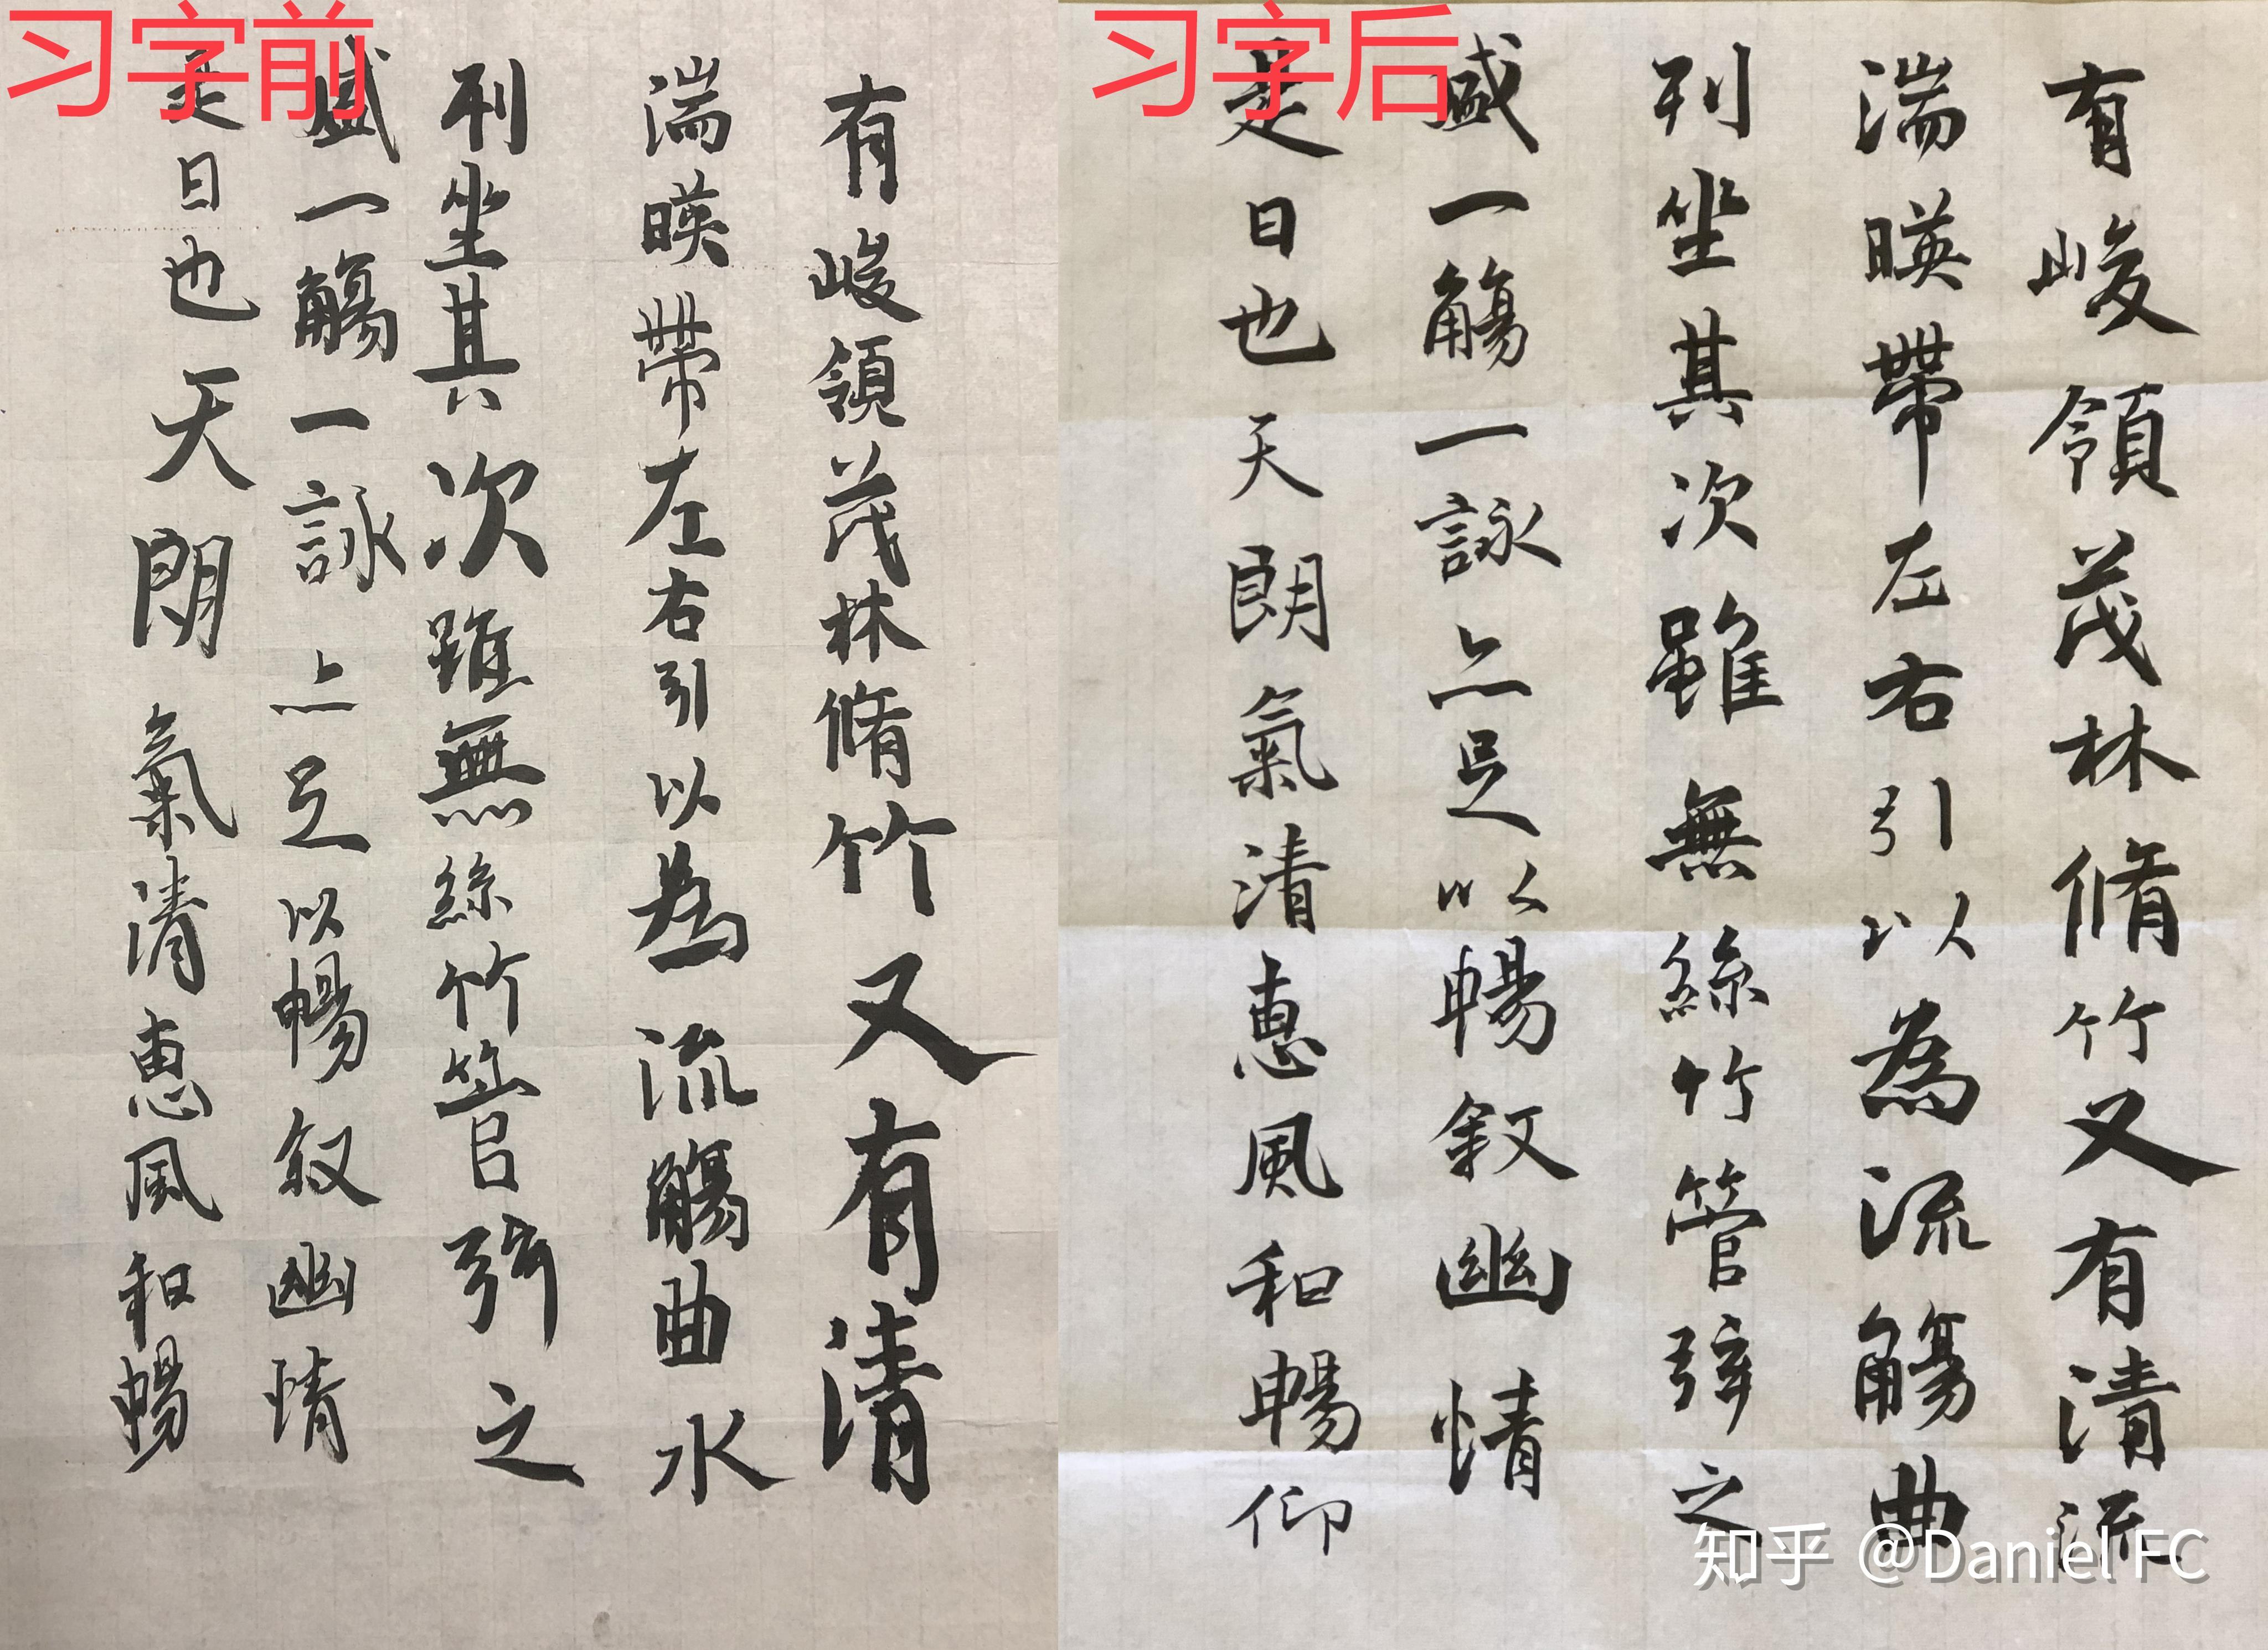 习字前
有峻領茂林脩竹又有清
湍暎帶左右引以為流觴曲水
列坐其次雖無絲竹管弦之
盛一觴一詠亦足以暢叙幽情
是日也天朗氣清惠風和暢
习字后
有峻領茂林脩竹又有清流
湍暎帶左右引以為流觴曲
列坐其次雖無絲竹管弦之
盛一觴一詠亦足以暢敘幽情
是日也天朗氣清惠風和暢仰
知乎 @Daniel FC